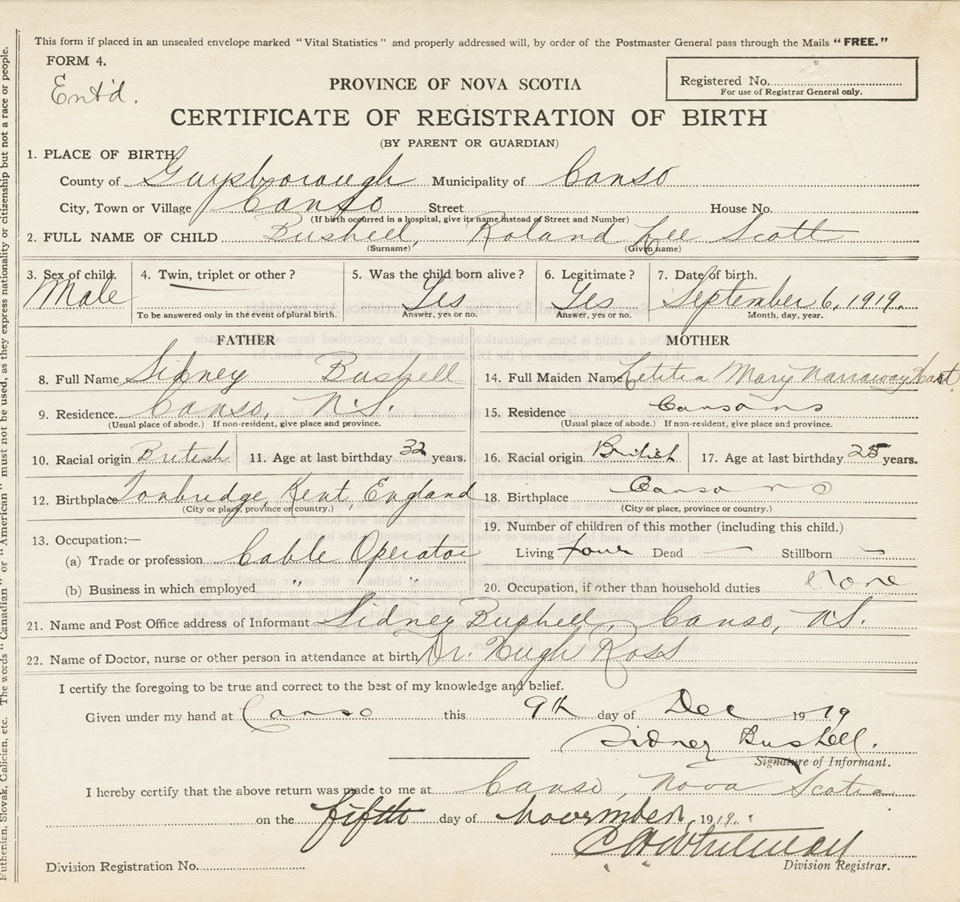 This form if placed in an unsealed envelope marked "Vital Statistics" and properly addressed will, by order of the Postmaster General pass through the Mails "FREE."
FORM 4.
Ent'd.
PROVINCE OF NOVA SCOTIA
Registered No.
For use of Registrar General only.
CERTIFICATE OF REGISTRATION OF BIRTH
(BY PARENT OR GUARDIAN)
1. PLACE OF BIRTH
County of Guysborough Municipality of Canso
City, Town or Village Canso Street House No.
(If birth occurred in a hospital, give its name instead of Street and Number)
2. FULL NAME OF CHILD Bushell, Roland Lee Scott
(Surname) (Given name)
3. Sex of child. 4. Twin, triplet or other? 5. Was the child born alive? 6. Legitimate? 7. Date of birth.
Male Yes Yes September 6, 1919.
To be answered only in the event of plural birth. Answer, yes or no. Answer, yes or no. Month, day, year.
FATHER MOTHER
8. Full Name Sidney Bushell 14. Full Maiden Name Letitia Mary Narraway Hart
9. Residence Canso, N.S. 15. Residence Canso N S
(Usual place of abode.) If non-resident, give place and province. (Usual place of abode.) If non-resident, give place and province.
10. Racial origin British 11. Age at last birthday 32 years. 16. Racial origin British 17. Age at last birthday 25 years.
12. Birthplace Tonbridge, Kent, England 18. Birthplace Canso N S
(City or place, province or country.) (City or place, province or country.)
13. Occupation:— 19. Number of children of this mother (including this child.)
(a) Trade or profession Cable Operator Living four Dead — Stillborn —
(b) Business in which employed " " 20. Occupation, if other than household duties none
21. Name and Post Office address of Informant Sidney Bushell, Canso, N.S.
22. Name of Doctor, nurse or other person in attendance at birth Dr. Hugh Ross
I certify the foregoing to be true and correct to the best of my knowledge and belief.
Given under my hand at Canso this 9th day of Dec 1919
Sidney Bushell.
Signature of Informant.
I hereby certify that the above return was made to me at Canso, Nova Scotia
on the fifth day of November, 1919.
Division Registration No. Division Registrar.
Ruthenian, Slovak, Galician, etc. The words "Canadian" or "American" must not be used, as they express nationality or citizenship but not a race or people.